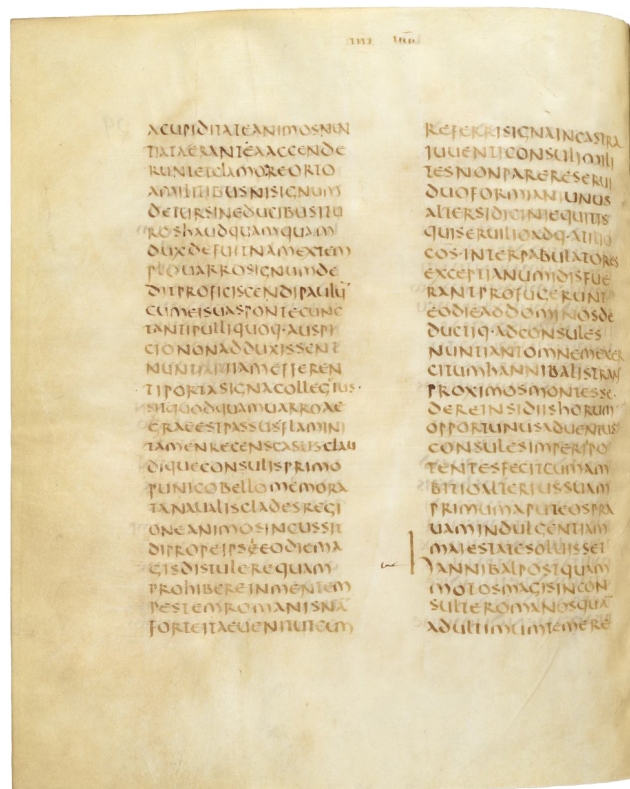 ACUPIDITATEANIMOSNUN
TIATAERANTEAACCENDE
RUNTETCLAMOREORTO
AMILITIBUSNISIGNUM
DETURSINEDUCIBUSITU
ROSHAUDQUAMQUAM
DUXDEFUITNAMEXTEM
PLOUARROSIGNUMDE
DITPROFICISCENDIPAULU̅
CUMEISUASPONTECUNC
TANTIPULLIQUOQ·AUSPI
CIONONADDUXISSENT
NUNTIARIIAMEFFEREN
TIPORTASIGNACOLLEGIUS·
SITQUODQUAMUARROAE
GRAEESTPASSUSFLAMINI
TAMENRECENSCASUSCLAU
DIQUECONSULISPRIMO
PUNICOBELLOMEMORA
TANAUALISCLADESREGI
ONEANIMOSINCUSSIT
DIPROPEIPSEEODIEMA
GISDISTULEREQUAM
PROHIBEREINMENTEM
PESTEMROMANISNA̅
FORTEITAEUENITUTCUM
REFERRISIGNAINCASTRA
IUUENTICONSULIMILI
TESNONPARERESERUI
DUOFORMIANIUNUS
ALTERSIDICINIEQUITIS
QUISERUILIOADQ·ATILIO
COS·INTERPABULATORES
EXCEPTIANUMIDISFUE
RANTPROFUGERUNT
EODIEADDOMINOSDE
DUCTIQ·ADCONSULES
NUNTIANTOMNEMEXER
CITUMHANNIBALISTRANS
PROXIMOSMONTESSE·
DEREINSIDIISHORUM
OPPORTUNUSADUENTUS
CONSULESIMPERIPO
TENTESFECITCUMAM
BITIOALTERIUSSUAM
PRIMUMAPUTEOSPRA
UAMINDULGENTIAM
MAIESTATESOLUISSET
HANNIBALPOSTQUAM
MOTOSMAGISINCON
SULTEROMANOSQUA̅
ADULTIMUMTEMERE